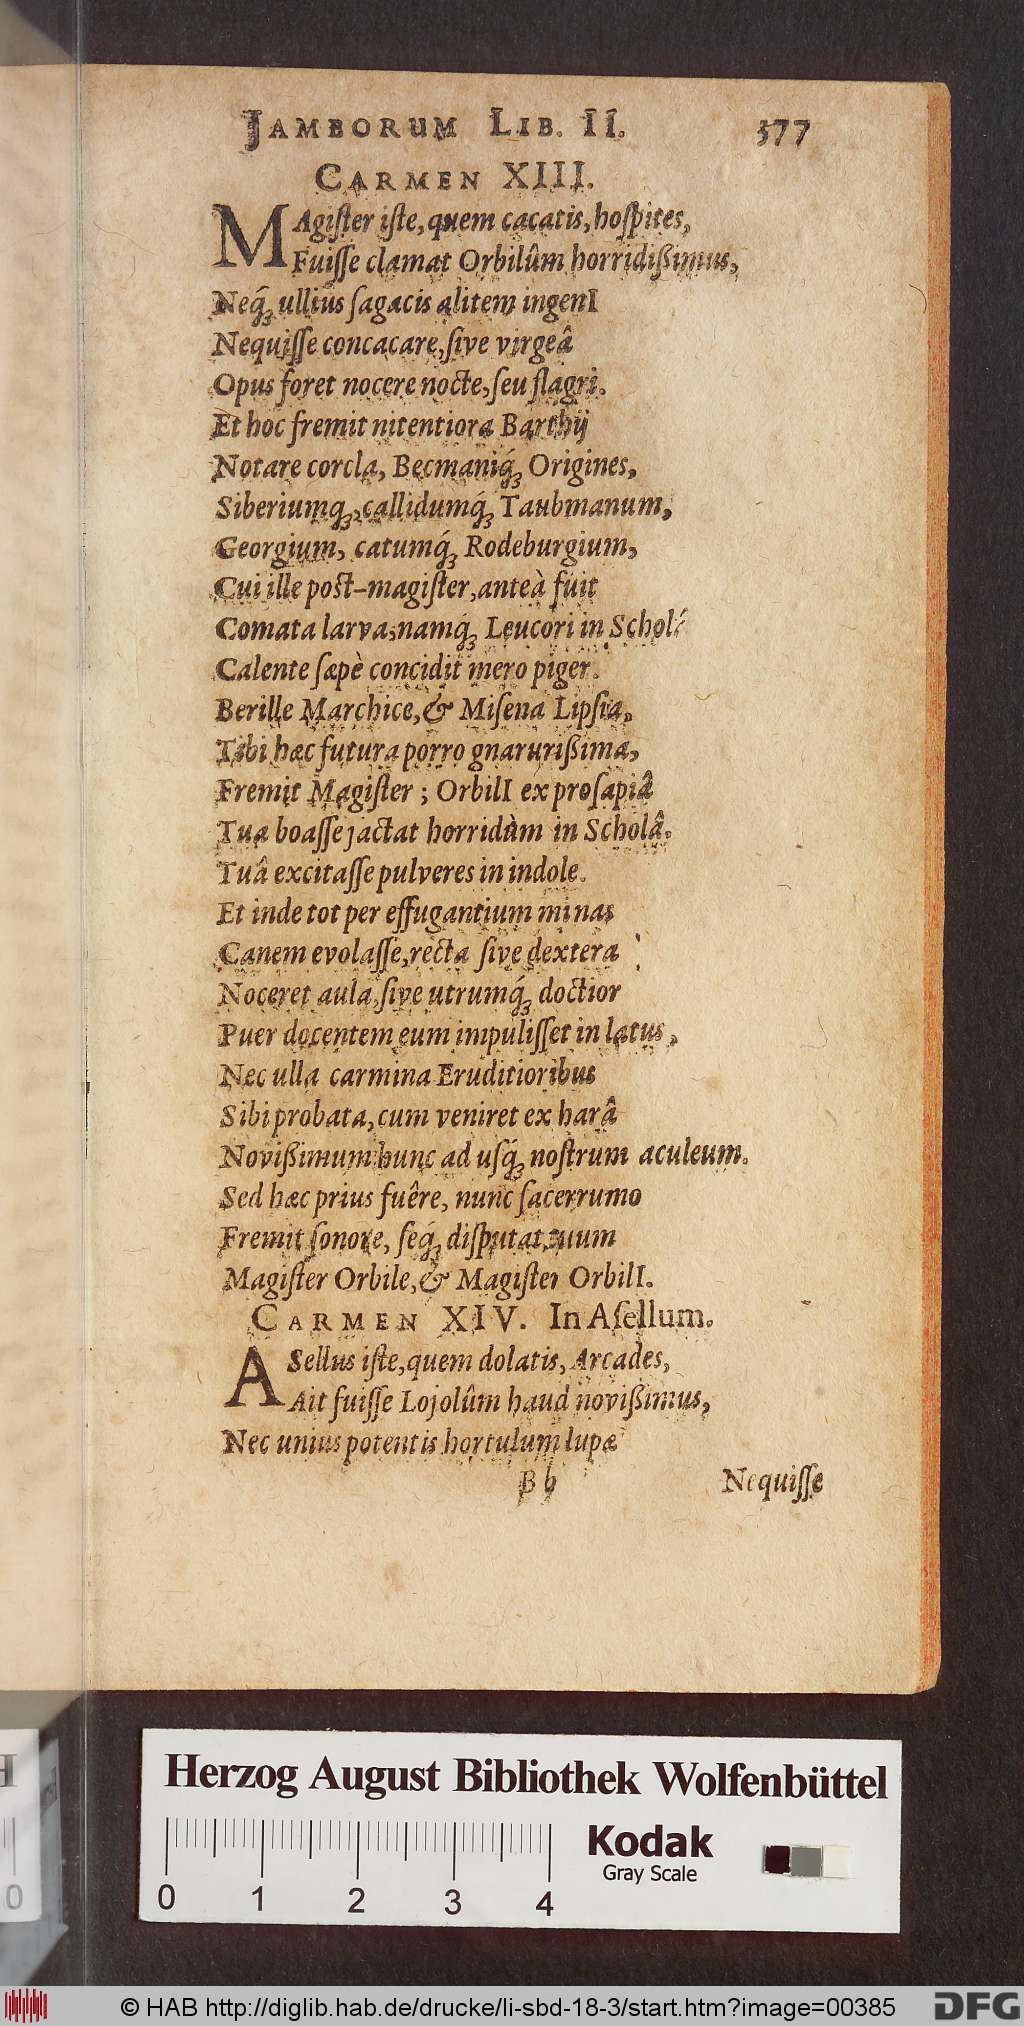 JAMBORUM LIB. II. 377
CARMEN XIII.
MAgiſter iſte, quem cacatis, hoſpites,
Fuiſſe clamat Orbilûm horridißimus,
Neq́ꝫ ullius ſagacis alitem ingenI
Nequiſſe concacare, ſive virgeâ
Opus foret nocere nocte, ſeu flagri.
Et hoc fremit nitentiora Barthij
Notare corcla, Becmaniq́ꝫ Origines,
Siberiumqꝫ, callidumq́ꝫ Taubmanum,
Georgium, catumq́ꝫ Rodeburgium,
Cui ille poſt-magiſter, anteà fuit
Comata larva; namq́ꝫ Leucori in Scholâ
Calente ſæpè concidit mero piger.
Berille Marchice, & Miſena Lipſia,
Tibi hæc futura porro gnarurißima,
Fremit Magiſter; OrbilI ex proſapiâ
Tua boaſſe jactat horridùm in Scholâ.
Tuâ excitaſſe pulveres in indole.
Et inde tot per effugantium minas
Canem evolaſſe, recta ſive dextera
Noceret aula, ſive utrumq́ꝫ doctior
Puer docentem eum impuliſſet in latus,
Nec ulla carmina Eruditioribus
Sibi probata, cum veniret ex harâ
Novißimum hunc ad uſq́ꝫ noſtrum aculeum.
Sed hæc prius fuêre, nunc ſacerrumo
Fremit ſonore, ſeq́ꝫ diſputat tuum
Magiſter Orbile, & Magiſter OrbilI.
CARMEN XIV. In Aſellum.
ASellus iſte, quem dolatis, Arcades,
Ait fuiſſe Lojolûm haud novißimus,
Nec unius potentis hortulum lupæ
B b Nequiſſe
Herzog August Bibliothek Wolfenbüttel
Kodak
Gray Scale
0 1 2 3 4
© HAB http://diglib.hab.de/drucke/li-sbd-18-3/start.htm?image=00385 DFG